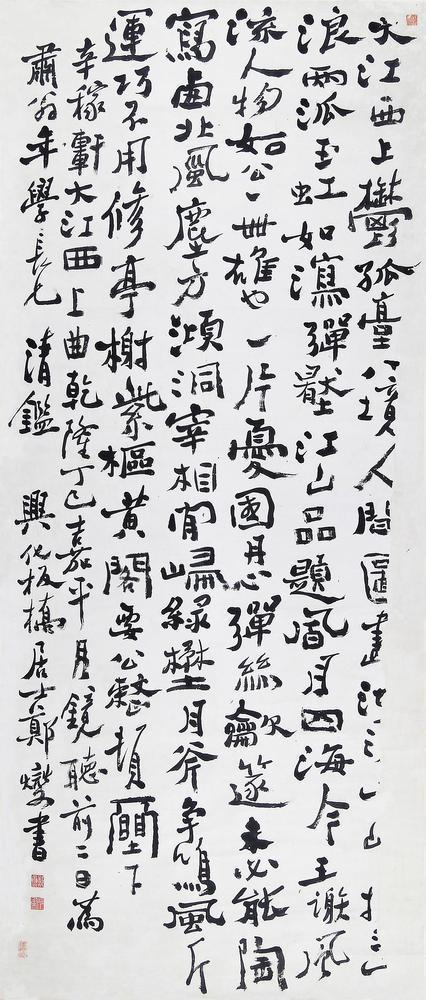 大江西上欝孤臺八境人間圖畫地
浪兩派玉虹如瀉彈壓江山品題風月四海今王謝風
流人物如公一世雄也一片憂國丹心彈絲龡篴未必能陶
寫鹵北風塵方澒洞宰相閒歸綠壄月斧爭鳴風斤
運巧不用修亭榭紫樞黃閣要公整頓下
辛稼軒大江西上曲乾隆丁巳嘉平月鏡聽前二日為
肅翁年學長兄 清鑑 興化板橋居士鄭燮書